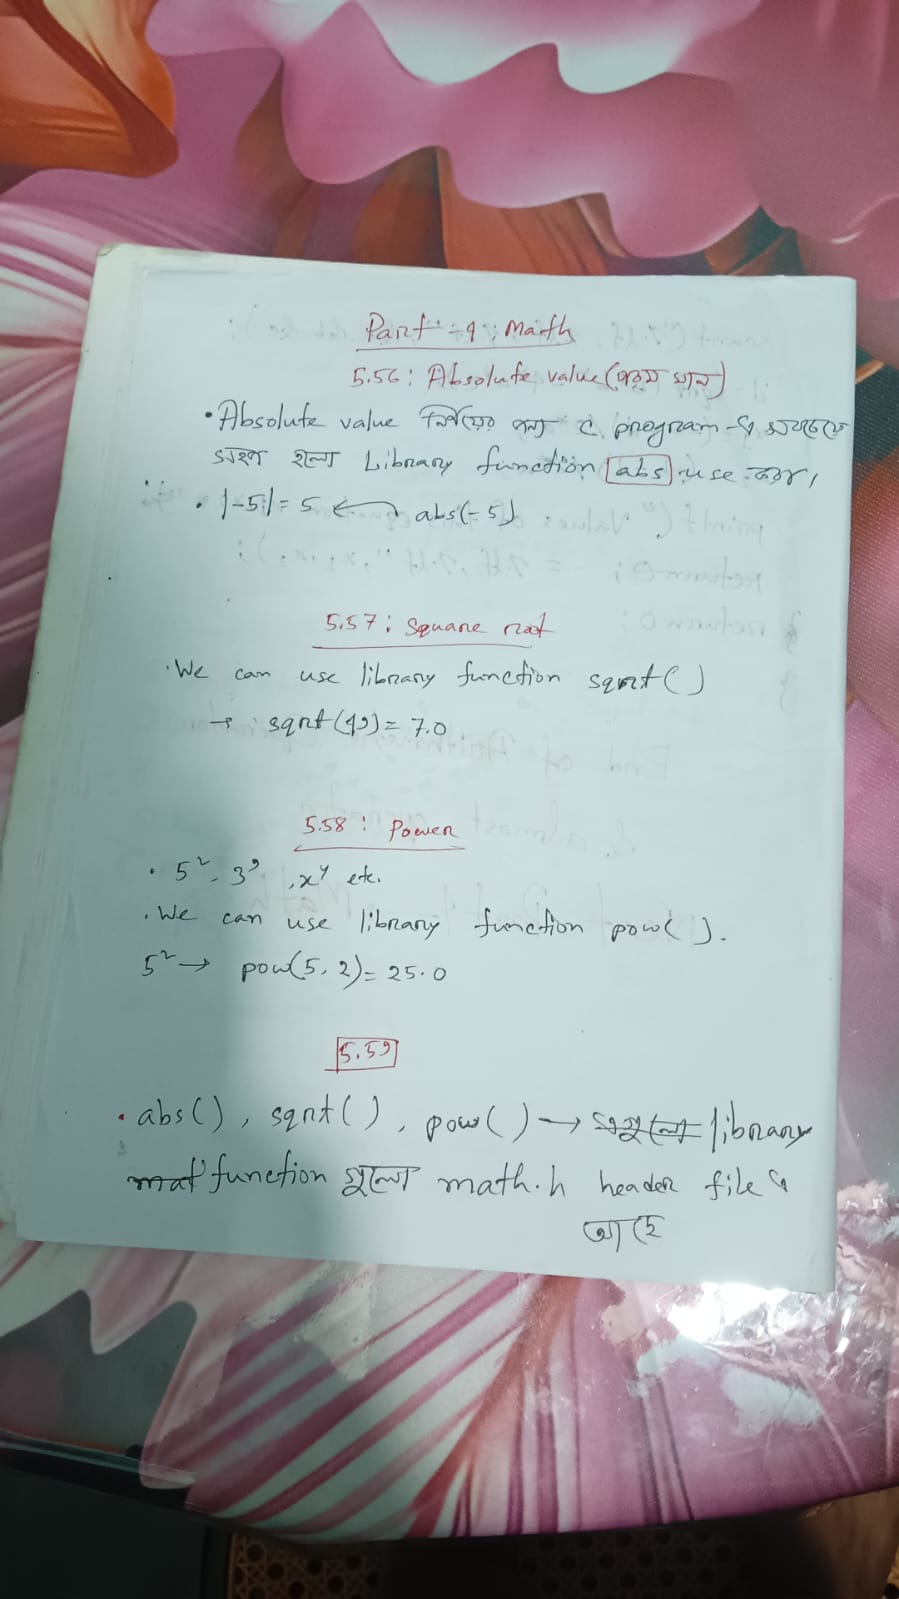 Part-9: Math
5.56: Absolute value (পরম মান)
• Absolute value নির্ণয়ের জন্য C program-এ সবচেয়ে
সহজ হলো Library function abs use করা,
• |-5| = 5 ← abs(-5)
5.57: Square root
• We can use library function sqrt()
→ sqrt(49) = 7.0
5.58: Power
• 5², 3⁹, xʸ etc.
• We can use library function pow().
5² → pow(5, 2) = 25.0
5.59
• abs(), sqrt(), pow() → library
function গুলো math.h header file এ
আছে